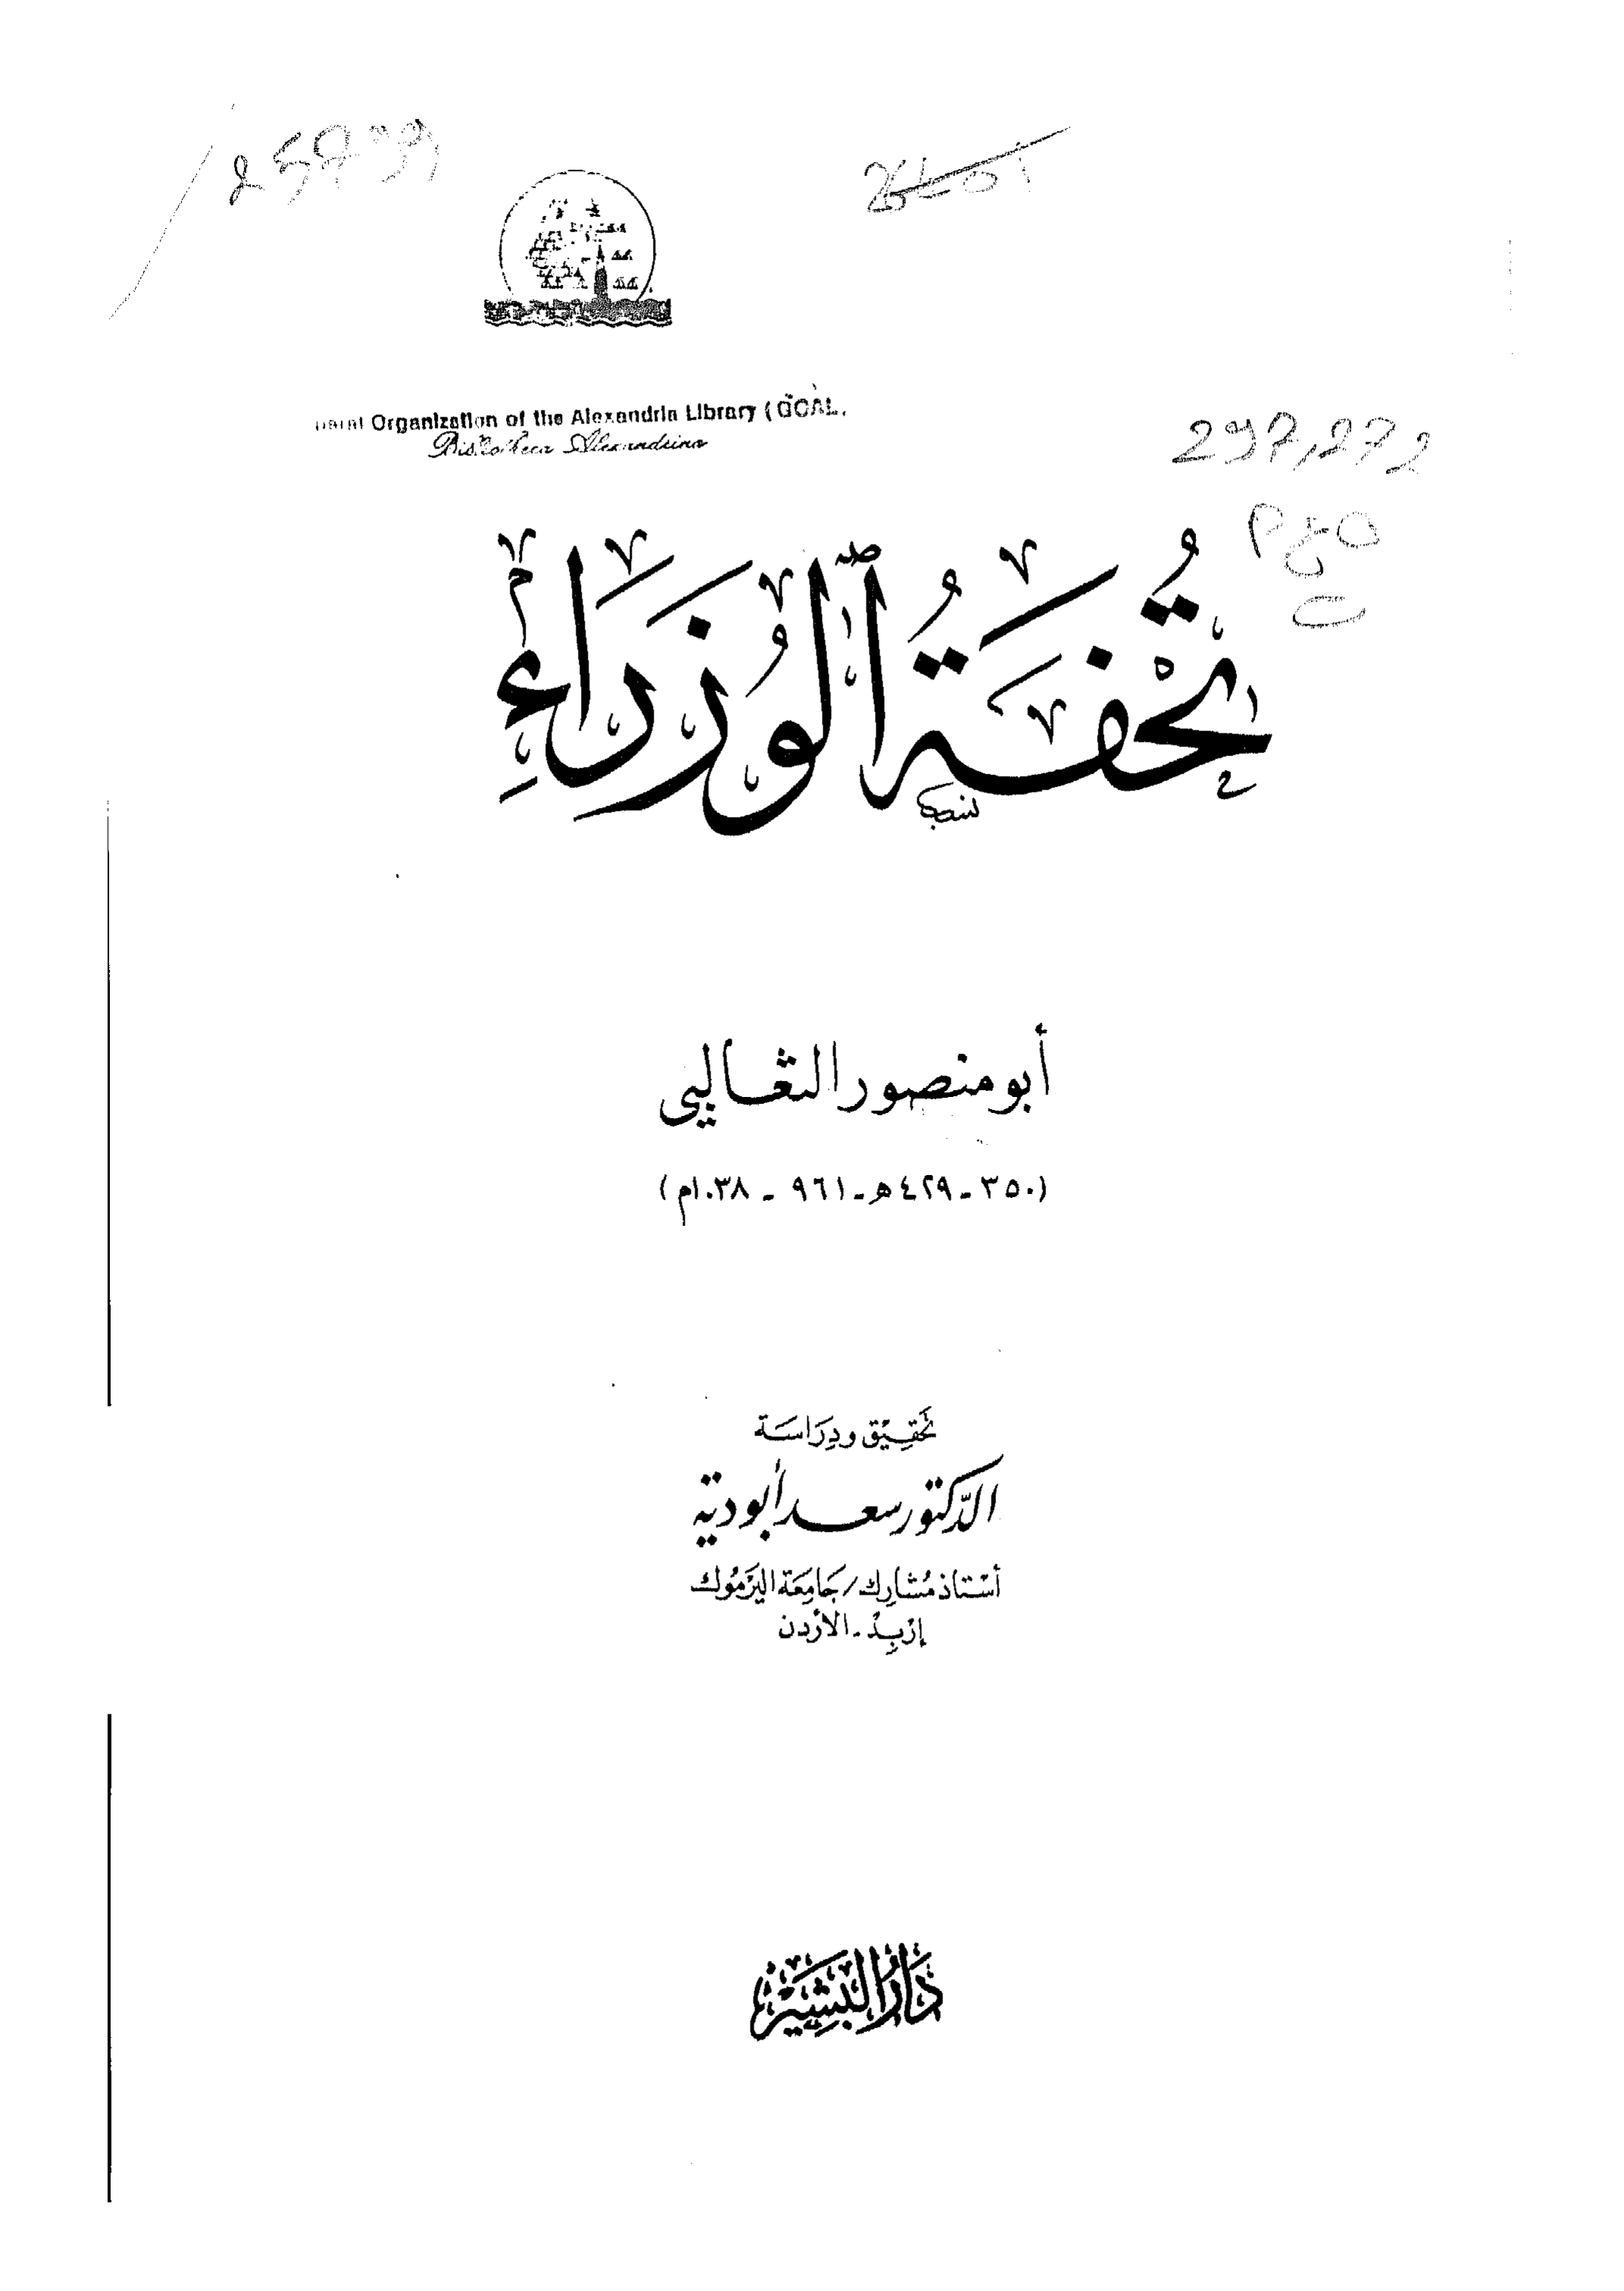 Organization of the Alexandria Library (GOAL.
Bibliotheca Alexandrina
297,272
تُحْفَةُ ٱلْوُزَرَاءِ
أبو منصور الثعالبي
(٣٥٠ - ٤٢٩هـ - ٩٦١ - ١٠٣٨م)
تحقيق ودراسة
الدكتور سعد أبو دية
أستاذ مشارك / جامعة اليرموك
إربد - الأردن
دار البشير